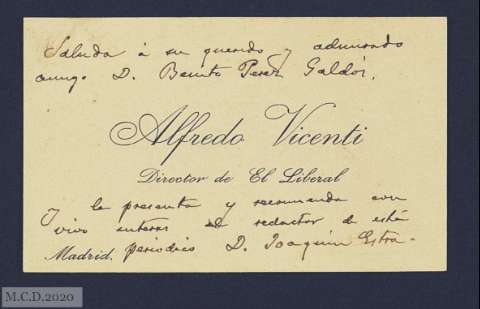 Saluda á su querido y admirado
amigo D. Benito Perez Galdós.
Alfredo Vicenti
Director de El Liberal
y le presenta y recomienda con
vivo interes al redactor de este
Madrid. periodico D. Joaquin Estra-
M.C.D.2020